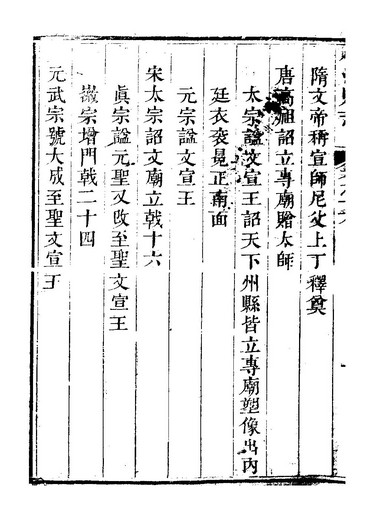 隋文帝稱宣師尼父上丁釋奠
唐高祖詔立專廟贈太師
太宗謚文宣王詔天下州縣皆立專廟塑像出內
廷衣袞冕正南面
元宗謚文宣王
宋太宗詔文廟立戟十六
眞宗謚元聖又改至聖文宣王
徽宗增門戟二十四
元武宗號大成至聖文宣王